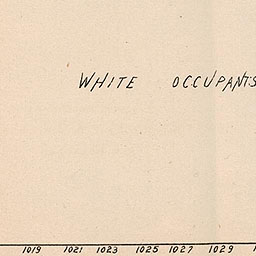 WHITE OCCUPANTS
1019 1021 1023 1025 1027 1029